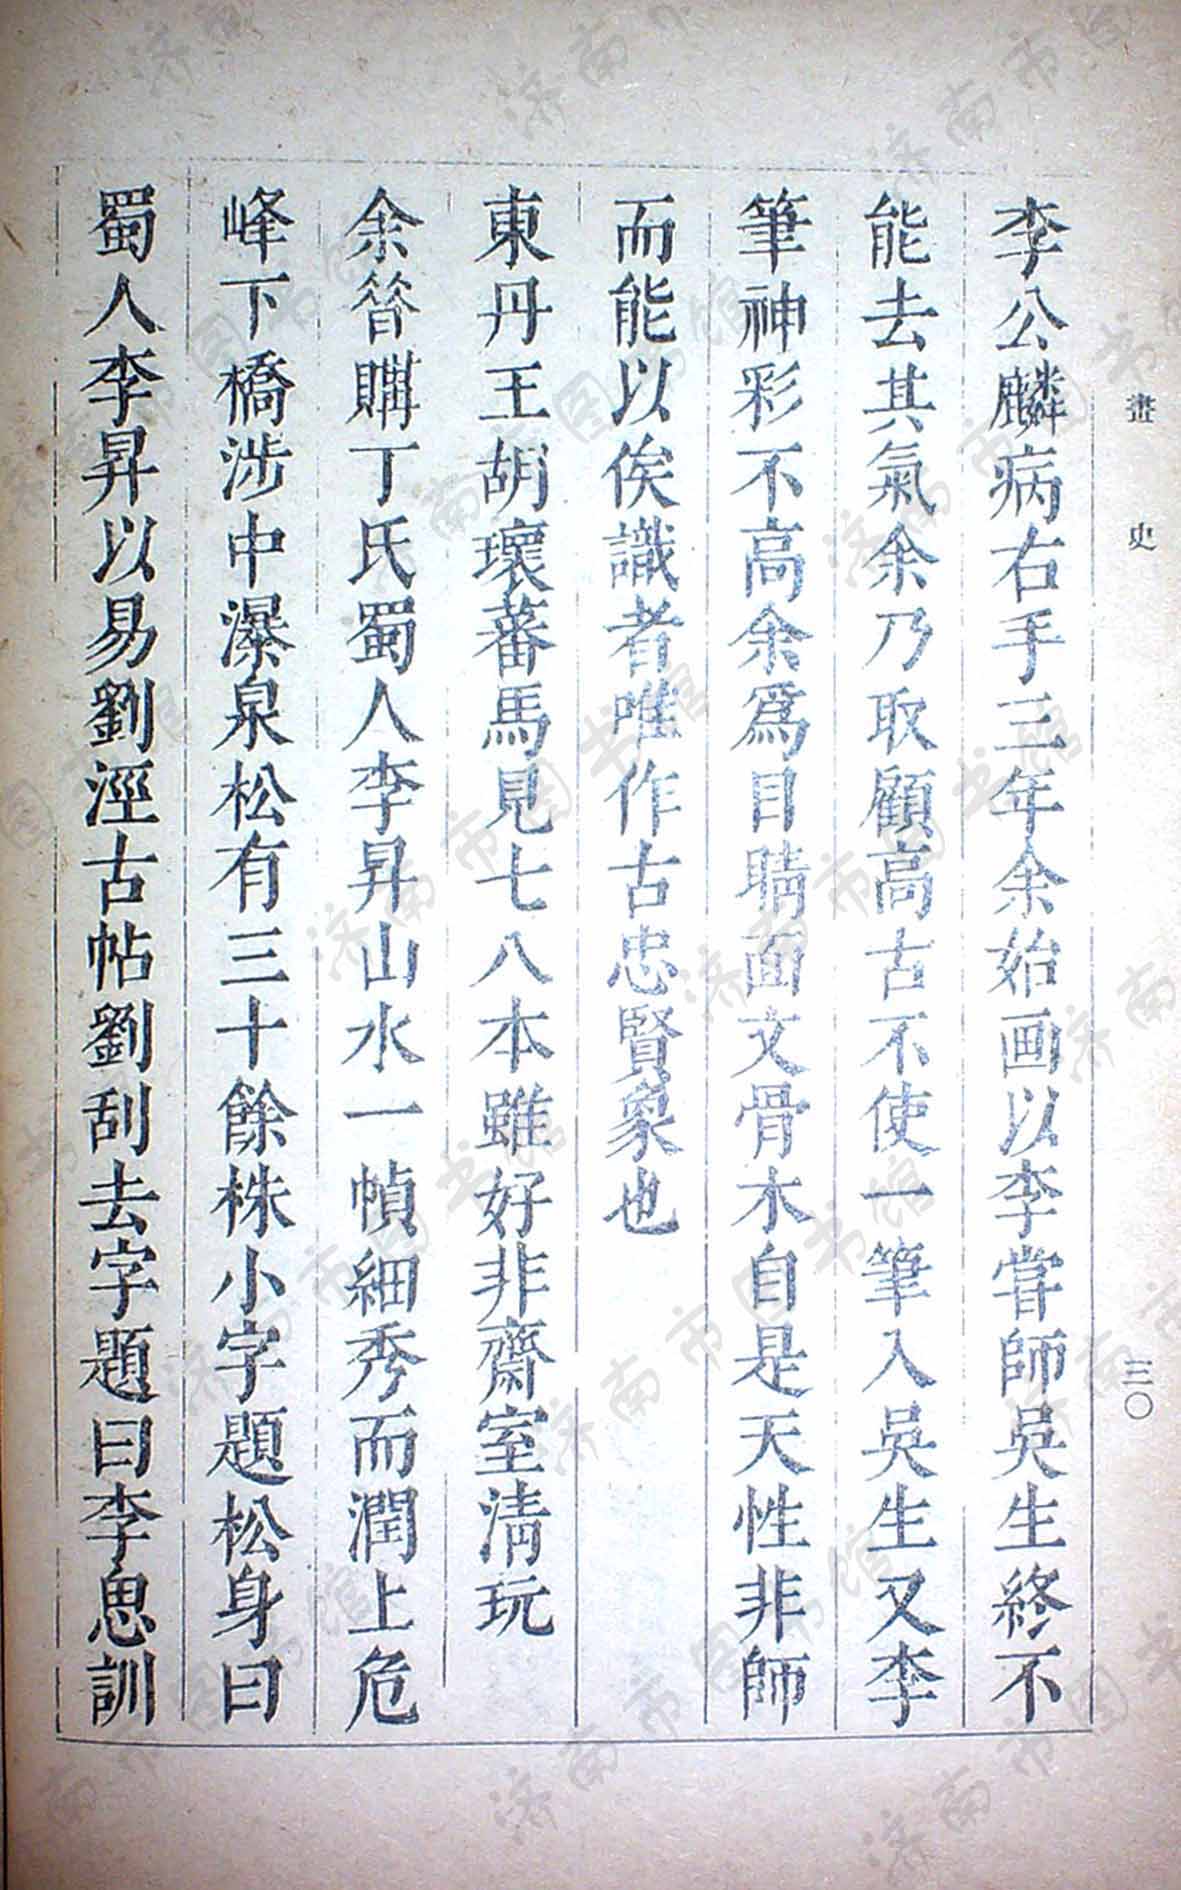 畫史
三〇
李公麟病右手三年余始画以李嘗師吳生終不
能去其氣余乃取顧高古不使一筆入吳生又李
筆神彩不高余爲目睛面文骨木自是天性非師
而能以俟識者唯作古忠賢象也
東丹王胡瓌蕃馬見七八本雖好非齋室清玩
余昝購丁氏蜀人李昇山水一幀細秀而潤上危
峰下橋涉中瀑泉松有三十餘株小字題松身曰
蜀人李昇以易劉涇古帖劉刮去字題曰李思訓
济南市图书馆